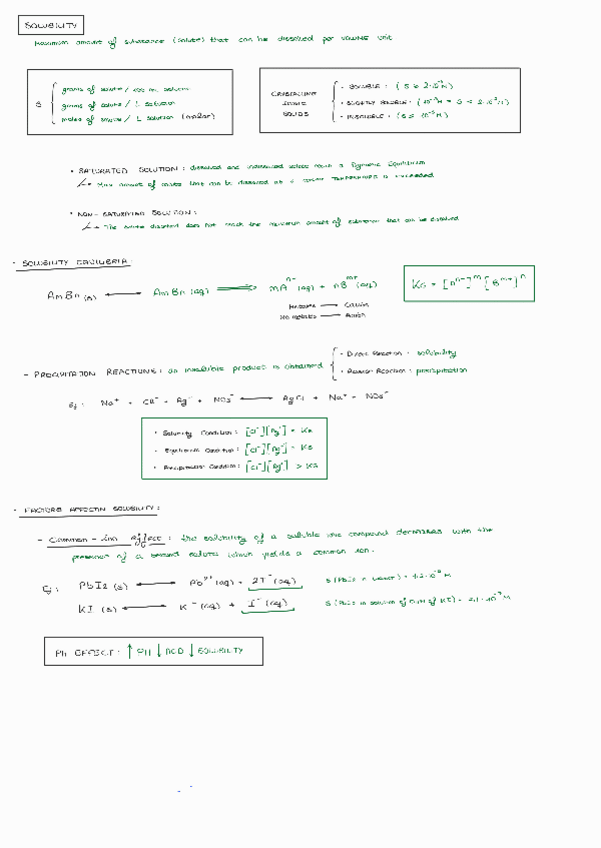 SOLUBILITY
Maximum amount of substance (solute) that can be dissolved per volume unit
S
grams of solute / 100 mL solvent
grams of solute / L solution
moles of solute / L solution (molar)
CRYSTALLINE IONIC SOLIDS
· SOLUBLE: (S ≥ 2·10⁻² M)
· SLIGHTLY SOLUBLE:
· INSOLUBLE:
· SATURATED SOLUTION: dissolved and undissolved solute reach a dynamic equilibrium
↳ Max amount of solute that can be dissolved at a given TEMPERATURE is
· NON-SATURATED SOLUTION:
↳ The solute dissolved does not reach the maximum amount of substance that can be dissolved
· SOLUBILITY EQUILIBRIA:
AmBn (s) ⟷ AmBn (aq) ⇌ mAⁿ⁺ (aq) + nBᵐ⁻ (aq)
→ Cation
→ Anion
Ks = [Aⁿ⁺]ᵐ [Bᵐ⁻]ⁿ
- PRECIPITATION REACTIONS: an insoluble product is obtained
· Direct Reaction: solubility
· Reverse Reaction: precipitation
Eg: Na⁺ + Cl⁻ + Ag⁺ + NO₃⁻ ⟷ AgCl + Na⁺ + NO₃⁻
· Solubility Condition: [Cl⁻][Ag⁺] < Ks
· Equilibrium Condition: [Cl⁻][Ag⁺] = Ks
· Precipitation Condition: [Cl⁻][Ag⁺] > Ks
· FACTORS AFFECTIN SOLUBILITY:
- Common-Ion effect: the solubility of a soluble ionic compound decreases with the
presence of a second solute which yields a common ion.
Eg: PbI₂ (s) ⟷ Pb²⁺ (aq) + 2I⁻ (aq)
S (PbI₂ in water) = 1.2·10⁻³ M
KI (s) ⟷ K⁺ (aq) + I⁻ (aq)
S (PbI₂ in solution of
PH EFFECT: ↑ PH ↓ ACID ↓ SOLUBILITY